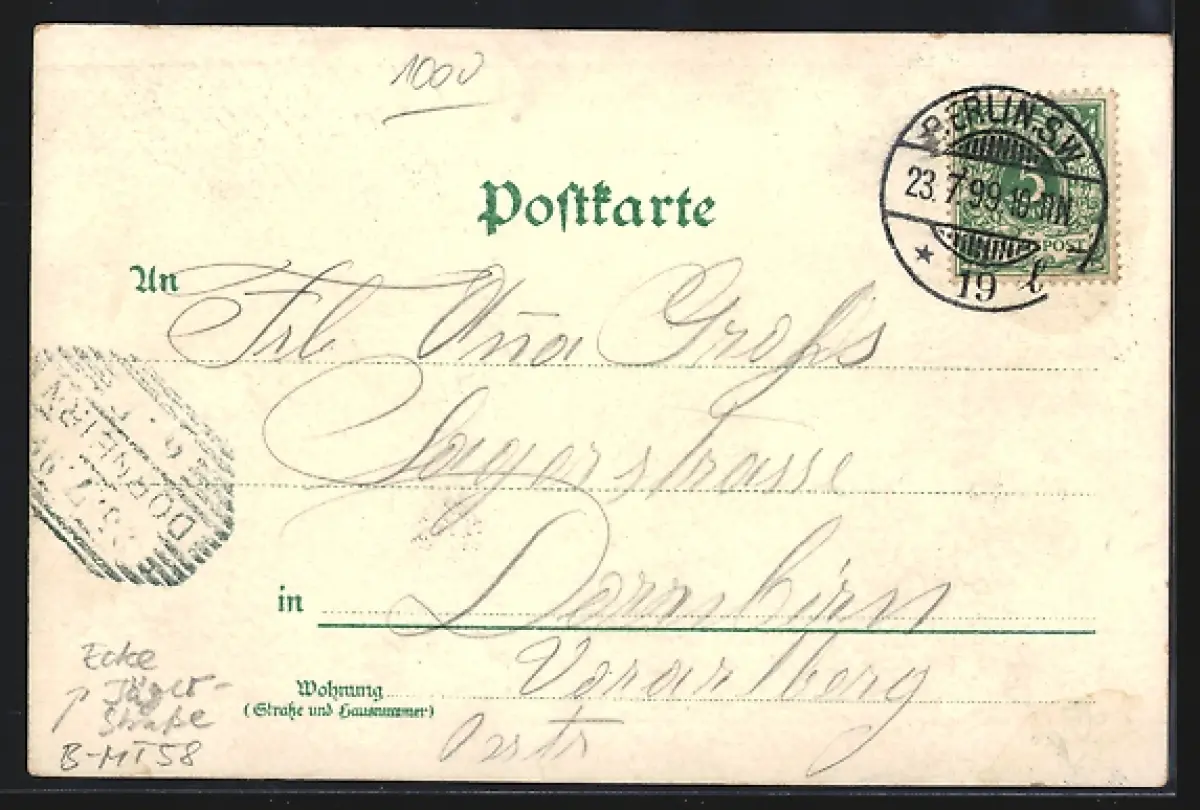 1000
BERLIN.S.W.
23.7.99.10-11N.
* 19 l
5
POST
Postkarte
An Frl Anna Grofs
Sagerstrasse
in Dornbirn
Vorarlberg
Wohnung
(Straße und Hausnummer)
Oestr
DORNBIRN
Ecke
Jäger-
Straße
B-MT58